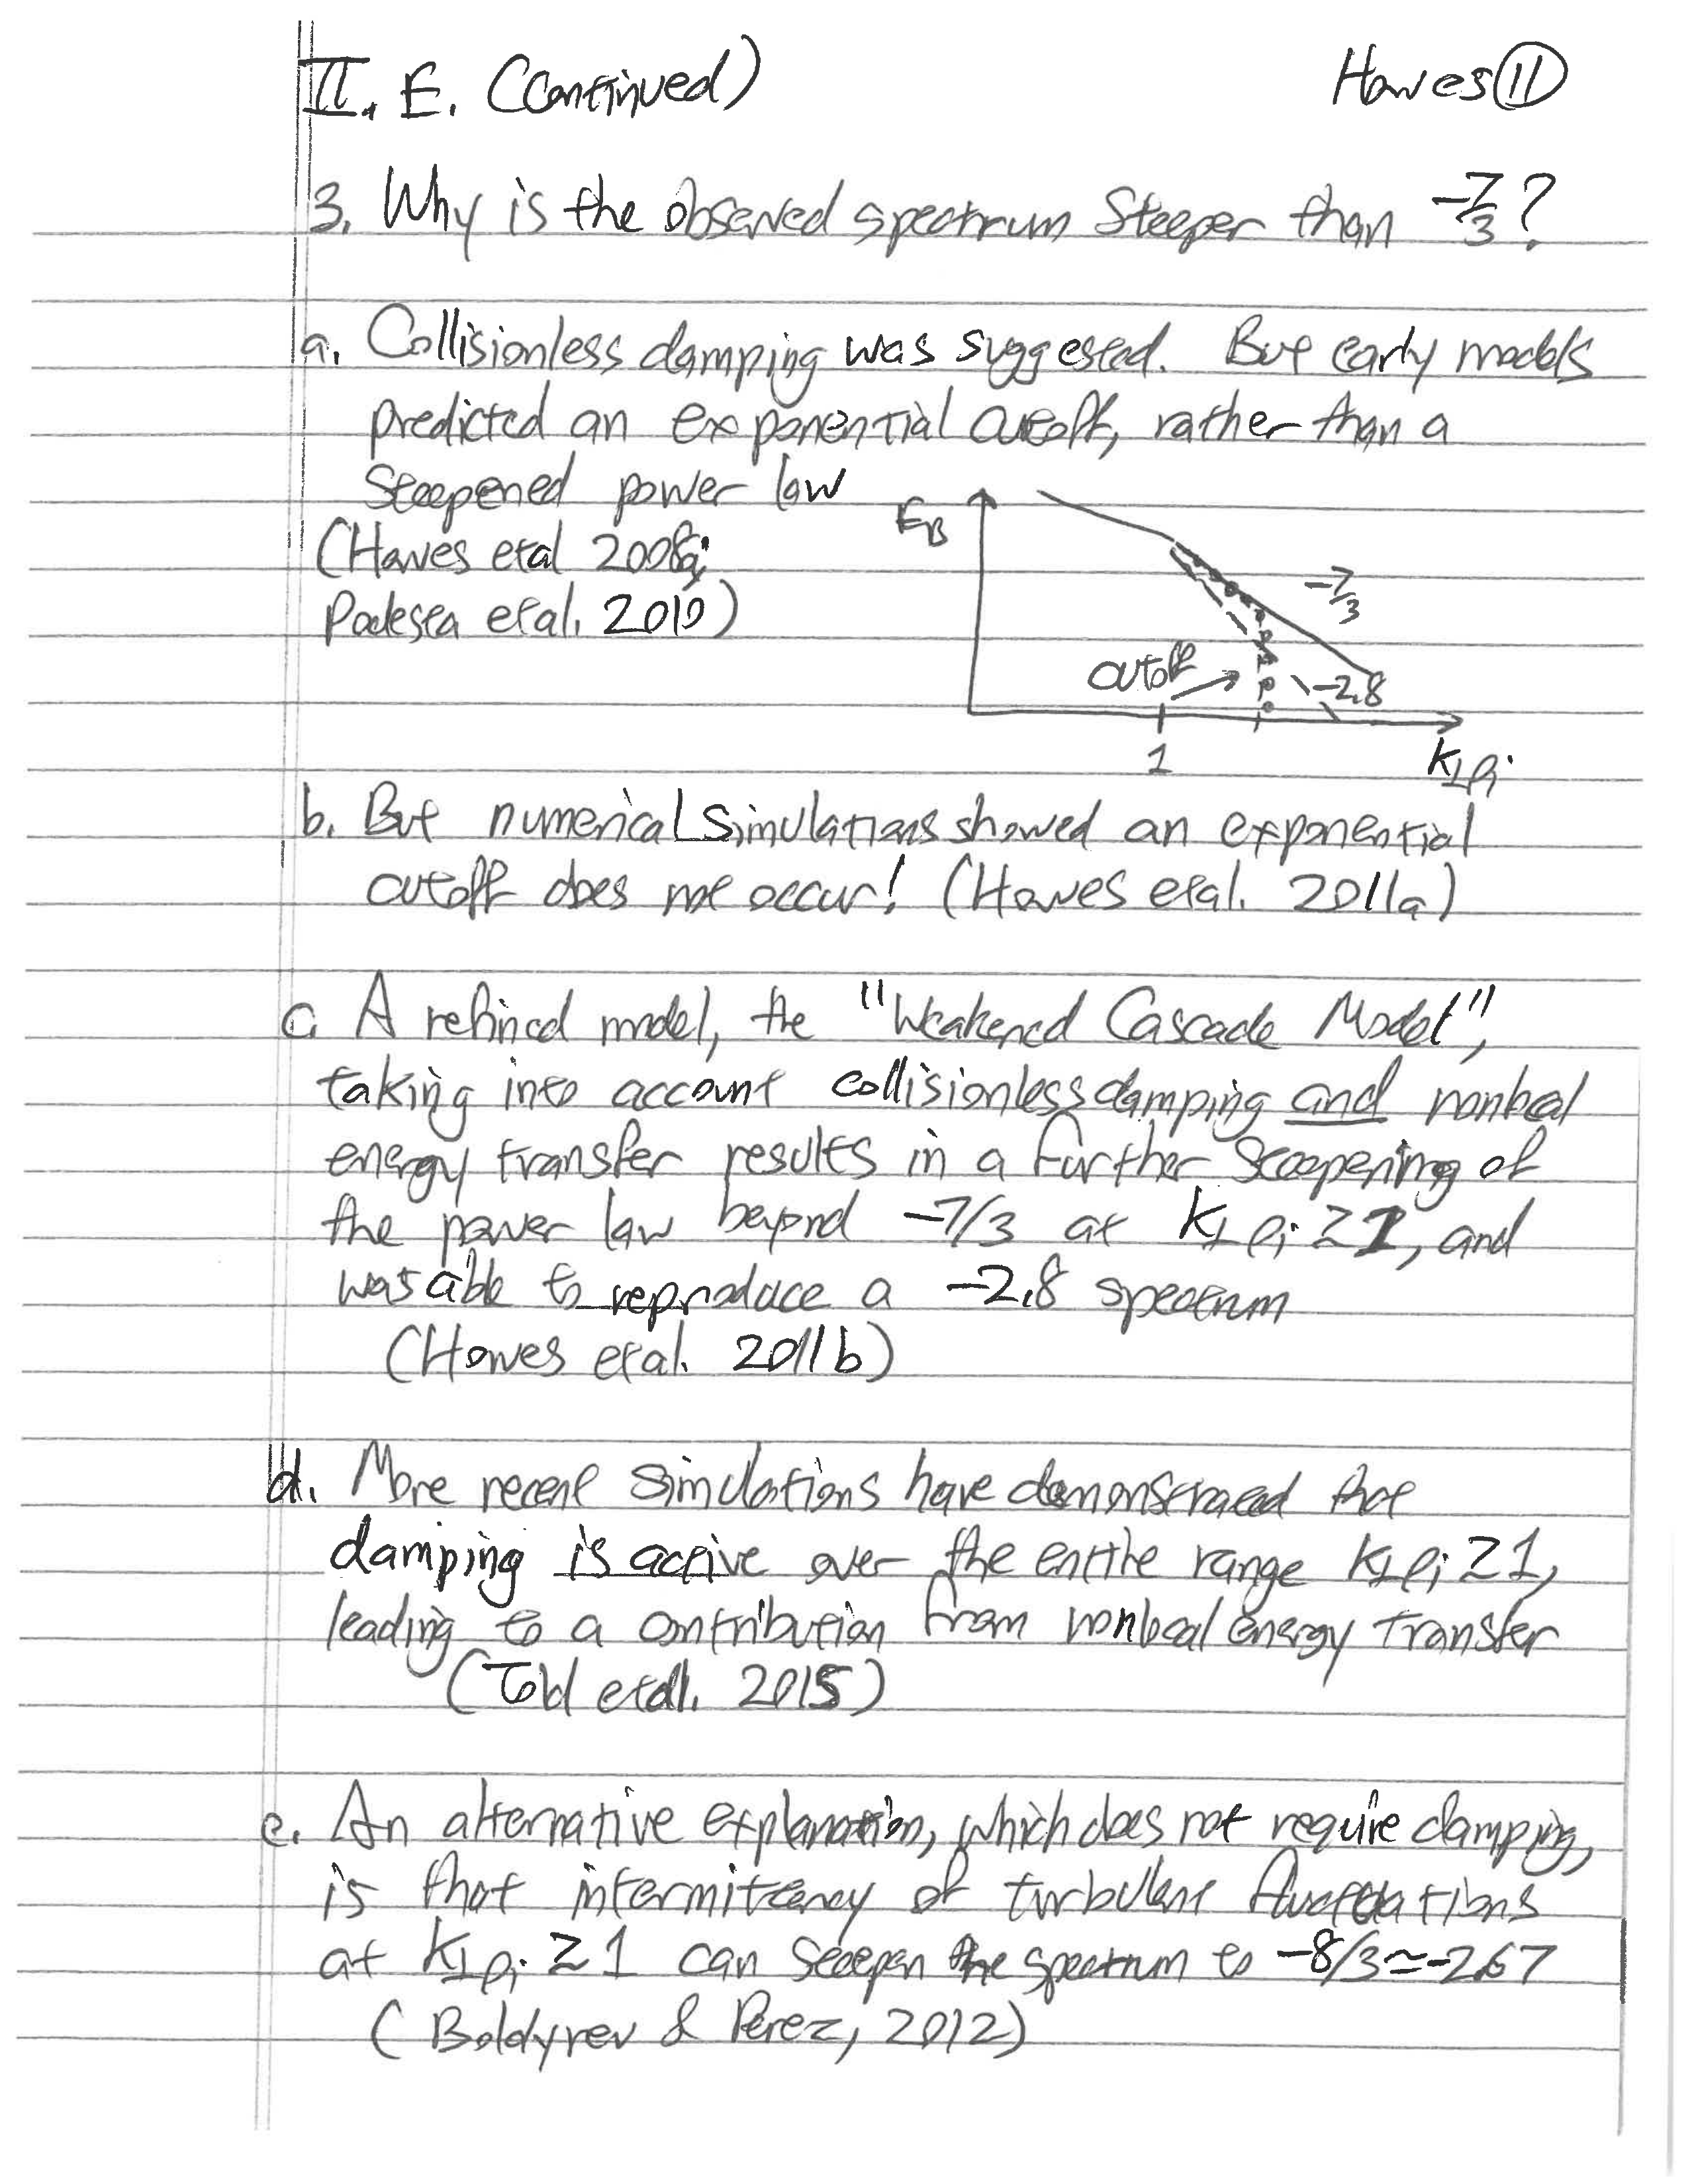 II. E. (Continued)
Howes 11
3. Why is the observed spectrum steeper than -7/3?
a. Collisionless damping was suggested. But early models
predicted an exponential cutoff, rather than a
steepened power law
(Howes et al 2008a;
Podesta et al. 2010)
E_B
-7/3
cutoff
-2.8
1
k⊥ρi
b. But numerical simulations showed an exponential
cutoff does not occur! (Howes et al. 2011a)
c. A refined model, the "Weakened Cascade Model",
taking into account collisionless damping and nonlocal
energy transfer results in a further steepening of
the power law beyond -7/3 at k⊥ρi ≳ 1, and
was able to reproduce a -2.8 spectrum
(Howes et al. 2011b)
d. More recent simulations have demonstrated that
damping is active over the entire range k⊥ρi ≳ 1,
leading to a contribution from nonlocal energy transfer
(Told et al. 2015)
e. An alternative explanation, which does not require damping,
is that intermittency of turbulent fluctuations
at k⊥ρi ≳ 1 can steepen the spectrum to -8/3 ≃ -2.67
(Boldyrev & Perez, 2012)